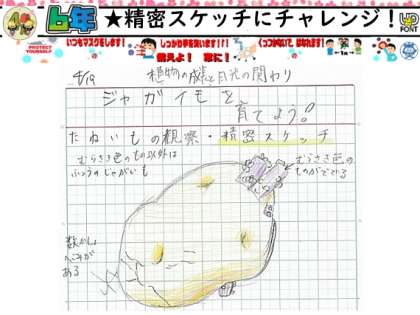 6年 ★精密スケッチにチャレンジ!
UD FONT
PROTECT YOURSELF!
いつもマスクをします!
しっかり手を洗います!!
くっつかないで、はなれます!
備えよ! 常に!
1m
4/19
植物の成長と日光の関わり
ジャガイモを
育てよう!
たねいもの観察・精密スケッチ
むらさき色のもの以外は
ふつうのじゃがいも
むらさき色の
ものがでてる
数かしょ
へこみが
ある